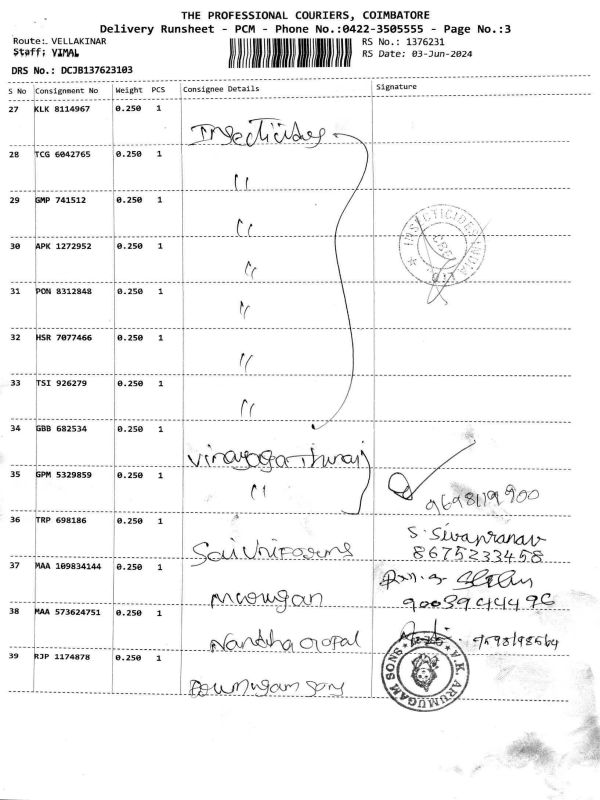 THE PROFESSIONAL COURIERS, COIMBATORE
Delivery Runsheet - PCM - Phone No.:0422-3505555 - Page No.:3
Route: VELLAKINAR RS No.: 1376231
Staff: VIMAL RS Date: 03-Jun-2024
DRS No.: DCJB137623103
S No Consignment No Weight PCS Consignee Details Signature
27 KLK 8114967 0.250 1 Insecticides
28 TCG 6042765 0.250 1 "
29 GMP 741512 0.250 1 "
INSECTICIDES INDIA LTD
CBE
30 APK 1272952 0.250 1 "
31 PON 8312848 0.250 1 "
32 HSR 7077466 0.250 1 "
33 TSI 926279 0.250 1 "
34 GBB 682534 0.250 1 Vinayaga Thurai
35 GPM 5329859 0.250 1 "
36 TRP 698186 0.250 1 S. Sivapranav
8675233458
37 MAA 109834144 0.250 1 Murugan
38 MAA 573624751 0.250 1 Nandha Gopal
39 RJP 1174878 0.250 1 sons
V.K. ARUMUGAM SONS